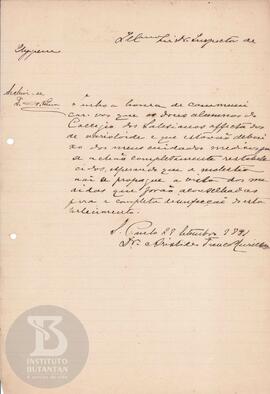 Illmo Snr Dr. Inspector de
Hygiene
Archive-se
Tenho a honra de communi
car-vos que os dous alumnos do
Collegio dos Salesianos affecta dos
de varioloide e que estavão debai
xo dos meus cuidados medicos,
se achão completamente restabele
cidos, esperando que a molestia
não se propague a vista das me
didas que forão aconselhadas
para a completa desinfecção deste
S. Paulo 28 Setembro 1891
Dr.
INSTITUTO
BUTANTAN
A serviço da vida